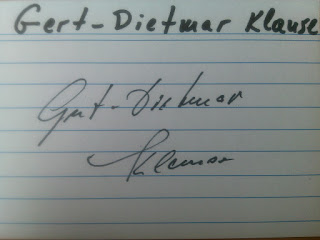 Gert-Dietmar Klause
Gert-Dietmar
Klause